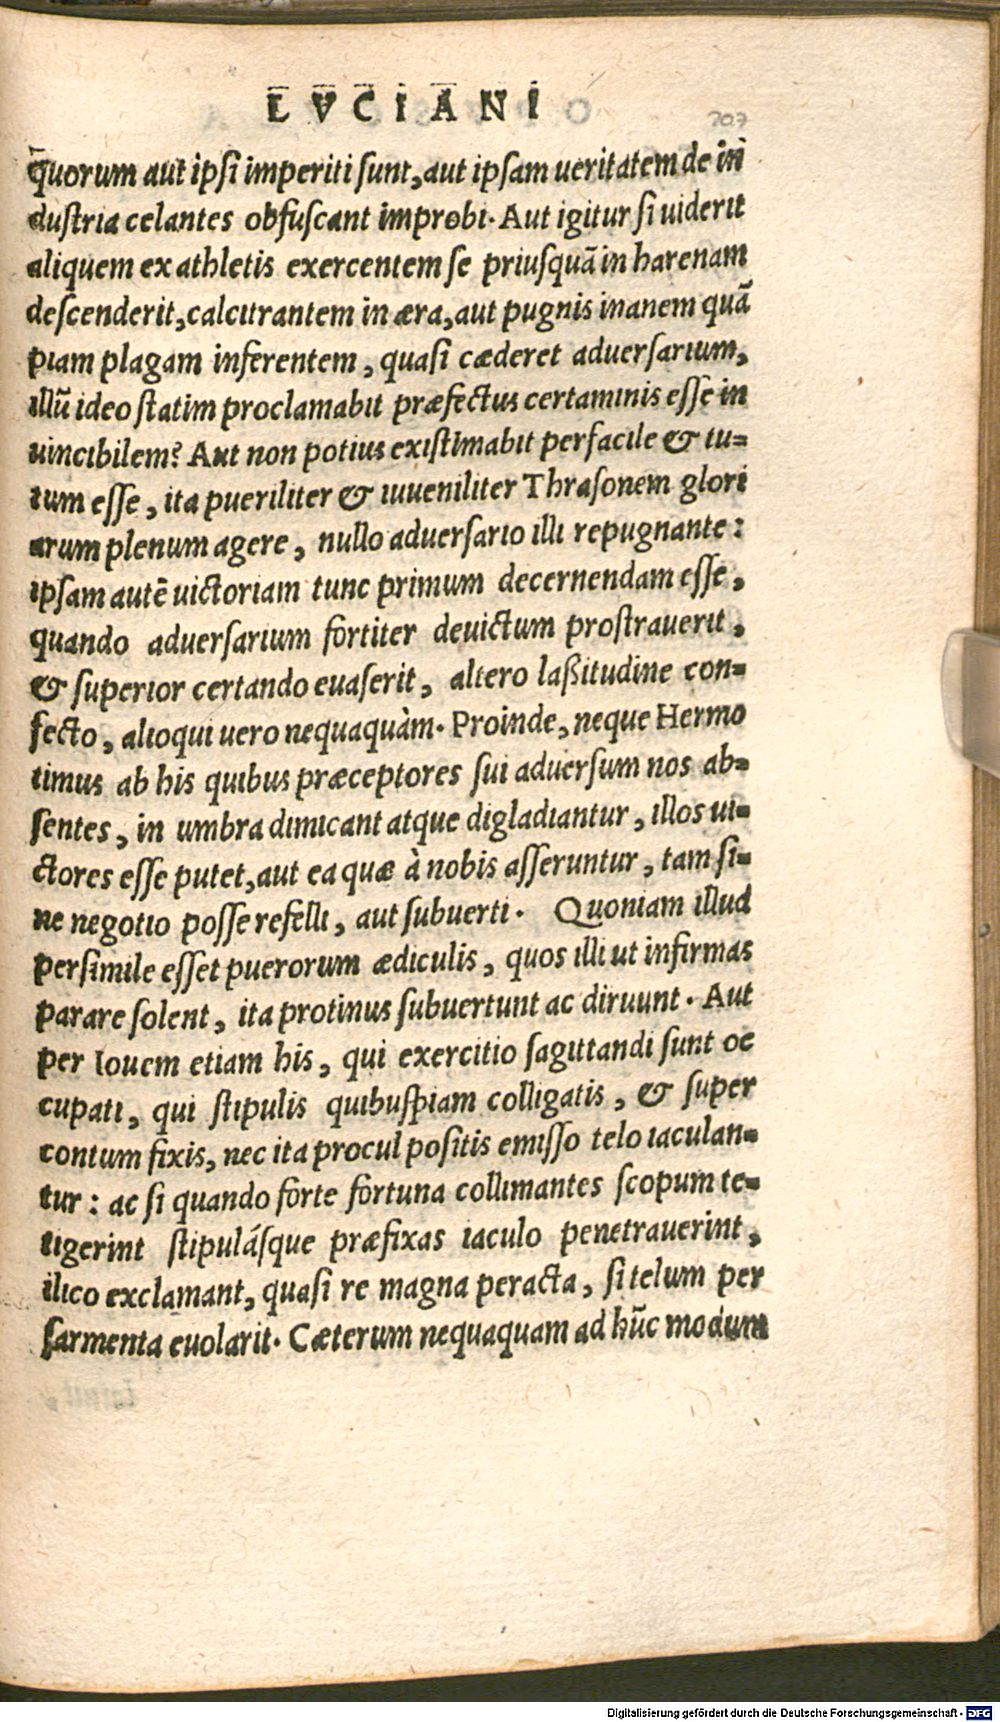 LVCIANI
207
quorum aut ipsi imperiti sunt, aut ipsam ueritatem de in
dustria celantes obfuscant improbi. Aut igitur si uiderit
aliquem ex athletis exercentem se priusquã in harenam
descenderit, calcitrantem in æra, aut pugnis inanem quã
piam plagam inferentem, quasi cæderet aduersarium,
illũ ideo statim proclamabit præfectus certaminis esse in
uincibilem? Aut non potius existimabit perfacile & tu-
tum esse, ita pueriliter & iuueniliter Thrasonem glori
arum plenum agere, nullo aduersario illi repugnante:
ipsam autẽ uictoriam tunc primum decernendam esse,
quando aduersarium fortiter deuictum prostrauerit,
& superior certando euaserit, altero laßitudine con-
fecto, alioqui uero nequaquàm. Proinde, neque Hermo
timus ab his quibus præceptores sui aduersum nos ab-
sentes, in umbra dimicant atque digladiantur, illos ui-
ctores esse putet, aut ea quæ à nobis asseruntur, tam si-
ne negotio posse refelli, aut subuerti. Quoniam illud
persimile esset puerorum ædiculis, quos illi ut infirmas
parare solent, ita protinus subuertunt ac diruunt. Aut
per Iouem etiam his, qui exercitio sagittandi sunt oc
cupati, qui stipulis quibuspiam colligatis, & super
contum fixis, nec ita procul positis emisso telo iaculan-
tur: ac si quando forte fortuna collimantes scopum te-
tigerint stipulásque præfixas iaculo penetrauerint,
ilico exclamant, quasi re magna peracta, si telum per
sarmenta euolarit. Cæterum nequaquam ad hũc modum
Digitalisierung gefördert durch die Deutsche Forschungsgemeinschaft - DFG